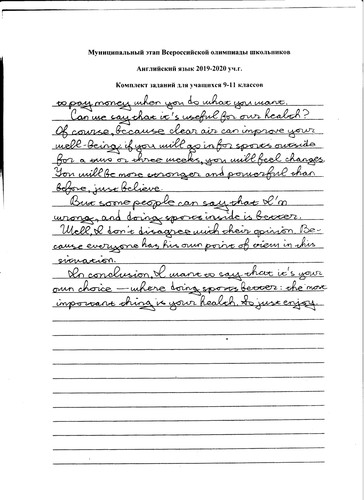 Муниципальный этап Всероссийской олимпиады школьников
Английский язык 2019-2020 уч.г.
Комплект заданий для учащихся 9-11 классов
to pay money when you do what you want.
Can we say that it's useful for our health?
Of course, because clear air can improve your
well-being, if you will go in for sports outside
for a two or three weeks, you will feel changes.
You will be more stronger and powerful than
before, just believe.
But some people can say that I'm
wrong, and doing sports inside is better.
Well, I don't disagree with their opinion. Be-
cause everyone has his own point of view in this
situation.
In conclusion, I want to say that it's your
own choice — where doing sports better: the most
important thing is your health. So just enjoy.